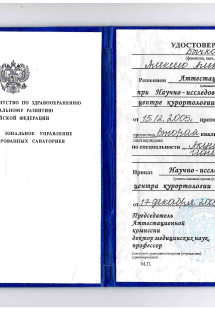 НТСТВО ПО ЗДРАВООХРАНЕНИЮ
АЛЬНОМУ РАЗВИТИЮ
ЙСКОЙ ФЕДЕРАЦИИ
ЗОНАЛЬНОЕ УПРАВЛЕНИЕ
ИРОВАННЫХ САНАТОРИЕВ
УДОСТОВЕР
Решением Аттестац
при Научно-исследо
центре курортологии
от 15.12.2005. прото
Вторая квали
по специальности
Приказ Научно-иссл
центра курортологии
от 17 декабря 200
Председатель
Аттестационной
комиссии
доктор медицинских наук,
профессор
М.П.